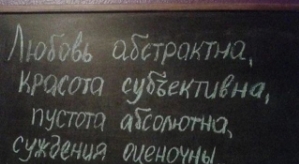 Любовь абстрактна,
красота субъективна,
пустота абсолютна,
суждения оценочны